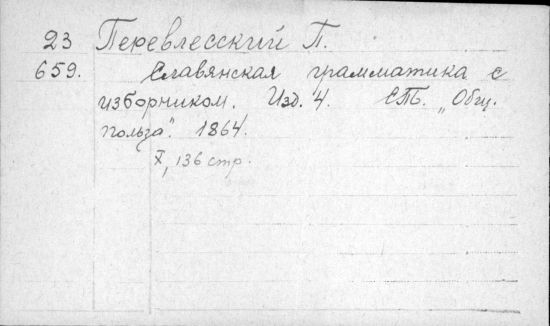 23 Перевлесский П.
659. Славянская грамматика с
изборником. Изд. 4. СПб. „Общ.
польза". 1864.
X, 136 стр.